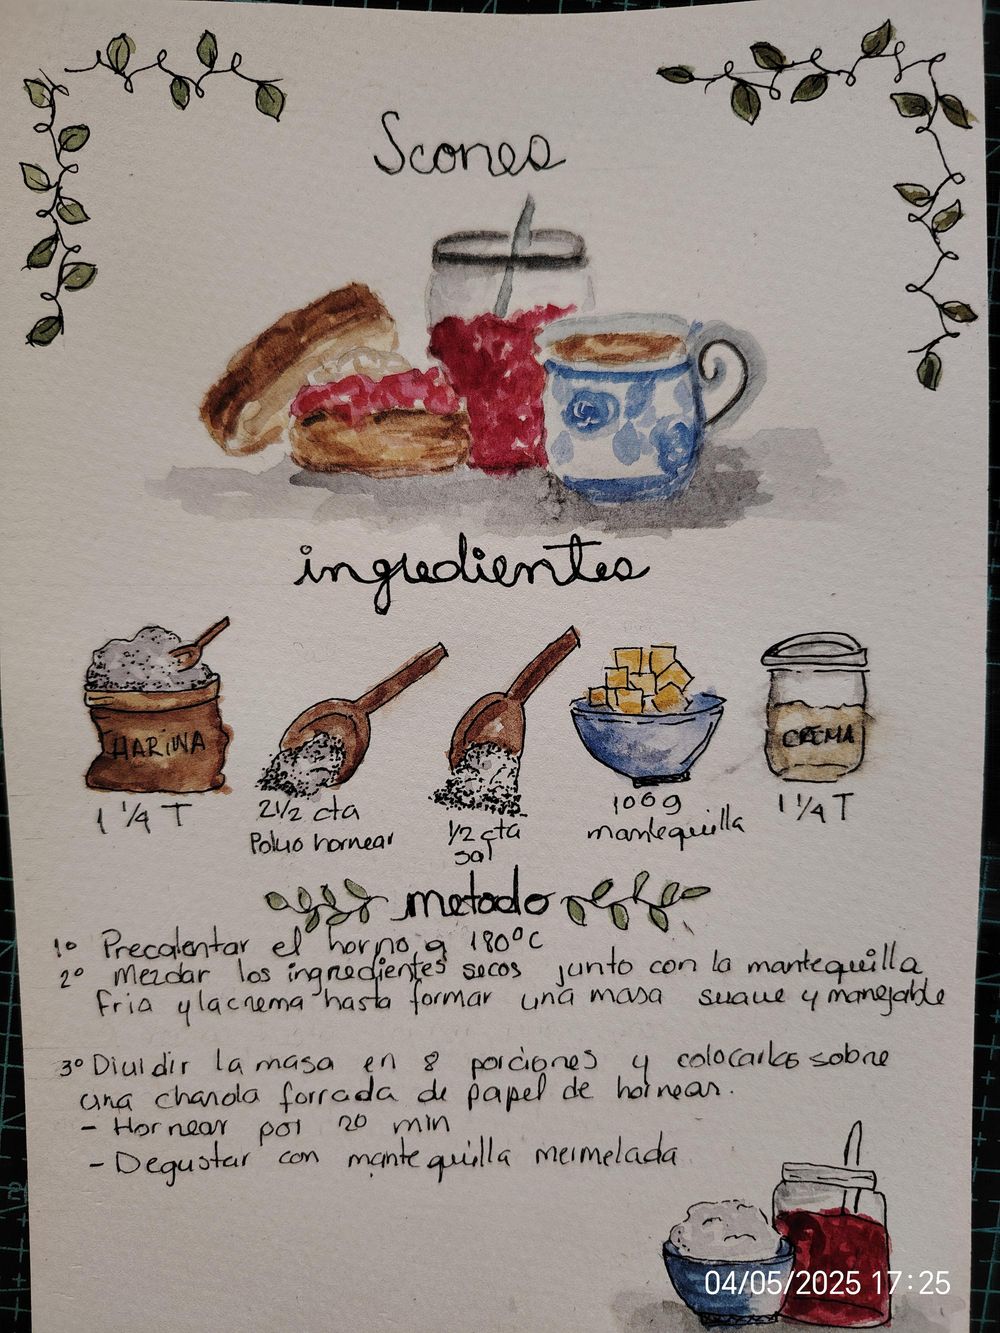 Scones
ingredientes
HARINA
CREMA
1 1/4 T
2 1/2 cta
Polvo hornear
1/2 cta
sal
100g
mantequilla
1 1/4 T
metodo
1º Precalentar el horno a 180ºC
2º Mezclar los ingredientes secos junto con la mantequilla
Fria y la crema hasta formar una masa suave y manejable
3º Dividir la masa en 8 porciones y colocarlos sobre
una charola forrada de papel de hornear.
- Hornear por 20 min
- Degustar con mantequilla mermelada
04/05/2025 17:25